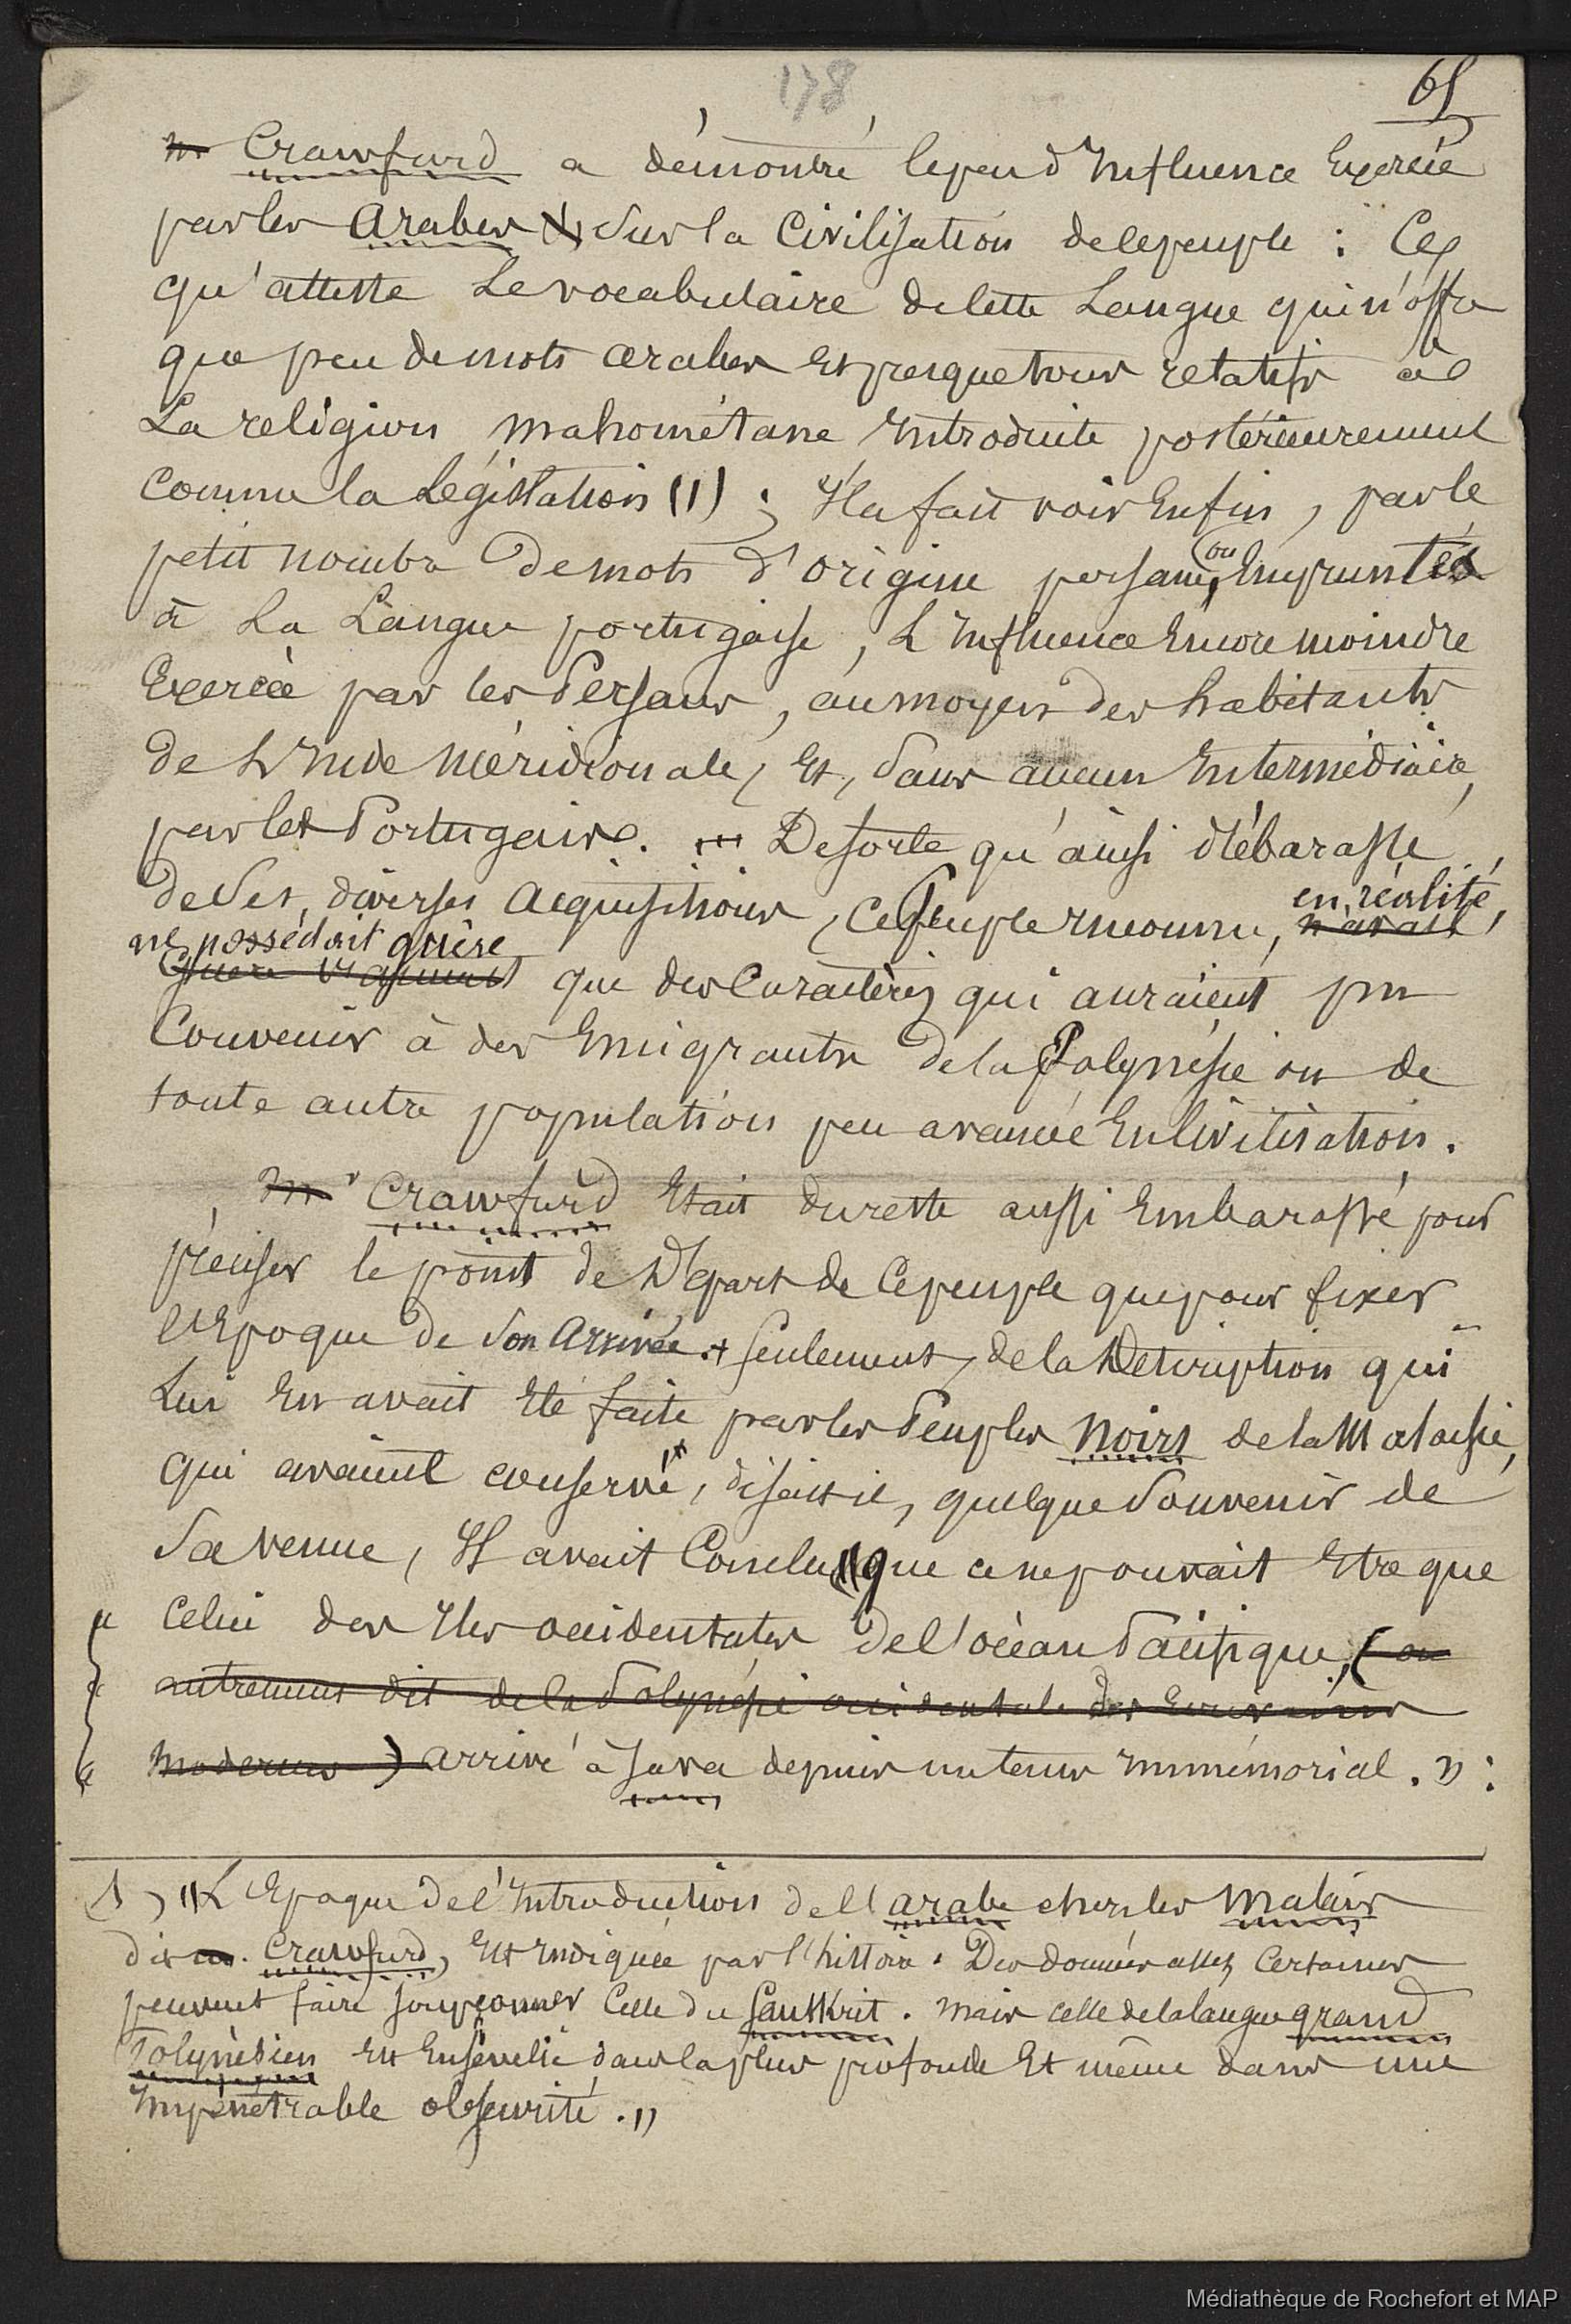 178
65
Crawfurd a démontré le peu d'Influence Exercée
par les arabes sur la Civilisation de ce peuple : Ce
qu'atteste Le vocabulaire de cette Langue qui n'offre
que peu de mots arabes Et presque tous relatifs à
La religion mahométane Introduite postérieurement
comme la Législation (1) ; Il a fait voir Enfin, par le
petit nombre De mots d'origine persane, ou Empruntés
à La Langue portugaise, L'Influence Encore moindre
Exercée par les Persans, au moyen des habitants
de L'Inde Méridionale, Et, Sans aucun Intermédiaire,
par les Portugais. De sorte qu'ainsi débarassé
de Ses diverses acquisitions, ce Peuple Inconnu, en réalité,
ne possédait guère que des Caractères qui auraient pu
Convenir à des Emigrants de la Polynésie ou de
toute autre population peu avancée En Civilisation.
Crawfurd Etait du reste aussi Embarassé pour
préciser le point de Départ de Ce peuple que pour fixer
L'Epoque de Son Arrivée. Seulement, de la Description qui
Lui En avait Eté faite par les Peuples Noirs de la Malaisie,
qui avaient conservé, disait-il, quelque Souvenir de
Sa venue, Il avait Conclu "que ce ne pouvait Etre que
Celui des Iles occidentales de l'océan Pacifique, (ou
autrement dit de la Polynésie occidentale des Ecrivains
modernes) arrivé à Java depuis un tems Immémorial. " :
(1) "L'Epoque de l'Introduction de l'arabe chez les Malais
dit m. Crawfurd, Est Indiquée par l'histoire. Des données assez Certaines
peuvent faire soupçonner Celle du Sanskrit. Mais celle de la langue grand
Polynésien Est Ensevelie dans la plus profonde Et même dans une
Impénétrable obscurité."
Médiathèque de Rochefort et MAP